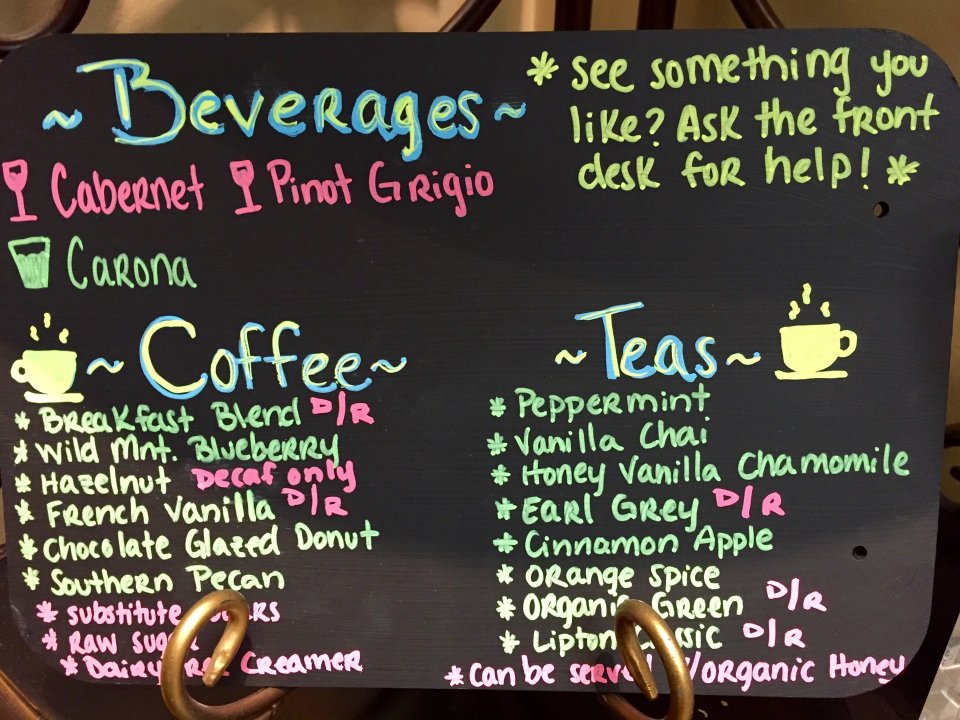 ~ Beverages ~
* See something you
like? Ask the front
desk for help! *
Cabernet Pinot Grigio
Carona
~ Coffee ~
* Breakfast Blend D/R
* Wild Mnt. Blueberry
* Hazelnut Decaf only
* French Vanilla D/R
* Chocolate Glazed Donut
* Southern Pecan
* substitute
* Raw
* Creamer
~ Teas ~
* Peppermint
* Vanilla Chai
* Honey Vanilla Chamomile
* Earl Grey D/R
* Cinnamon Apple
* Orange Spice
* Organic Green D/R
* Lipton D/R
* Can be /organic Honey